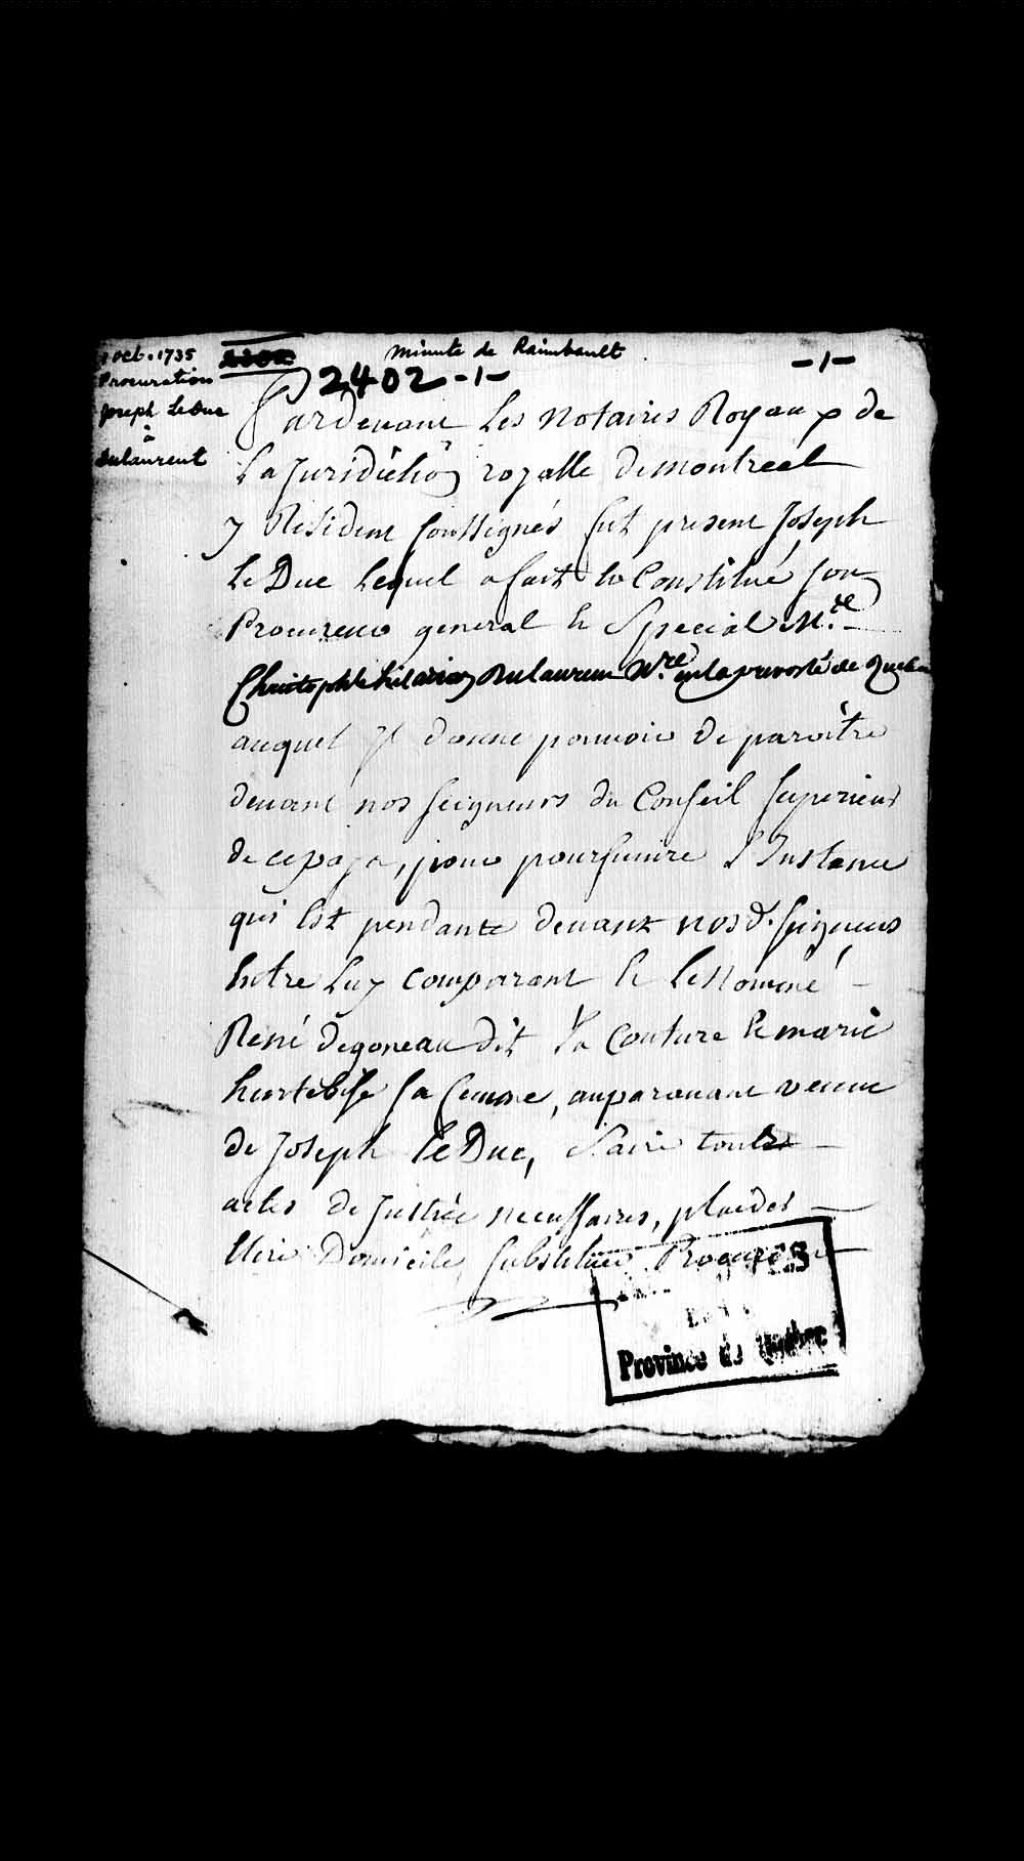 1 oct. 1735
Procuration
Joseph LeDuc
à
Dulaurent
Minute de Raimbault
-1-
2402-1-
Pardevant Les Notaires Royaux de
La Juridiction royalle de montreal
y Resident soussignés fut present Joseph
Le Duc Lequel a fait et Constitué son
Procureur general et Special Me.
Christophle hilarion Dulaurent Nre. en la prevosté de Quebec
auquel Il donne pouvoir de paroitre
devant nos seigneurs du Conseil superieur
de ce païs, pour poursuivre L'Instance
qui Est pendante devant nosd. seigneurs
Entre Luy comparant et Le Nommé
René degoneau dit La Couture et marie
hurtebise sa femme, auparavant veuve
de Joseph Le Duc, faire toutes
actes de Justice necessaires, plaider
Elire Domicile, substituer Procureur
Province de Québec